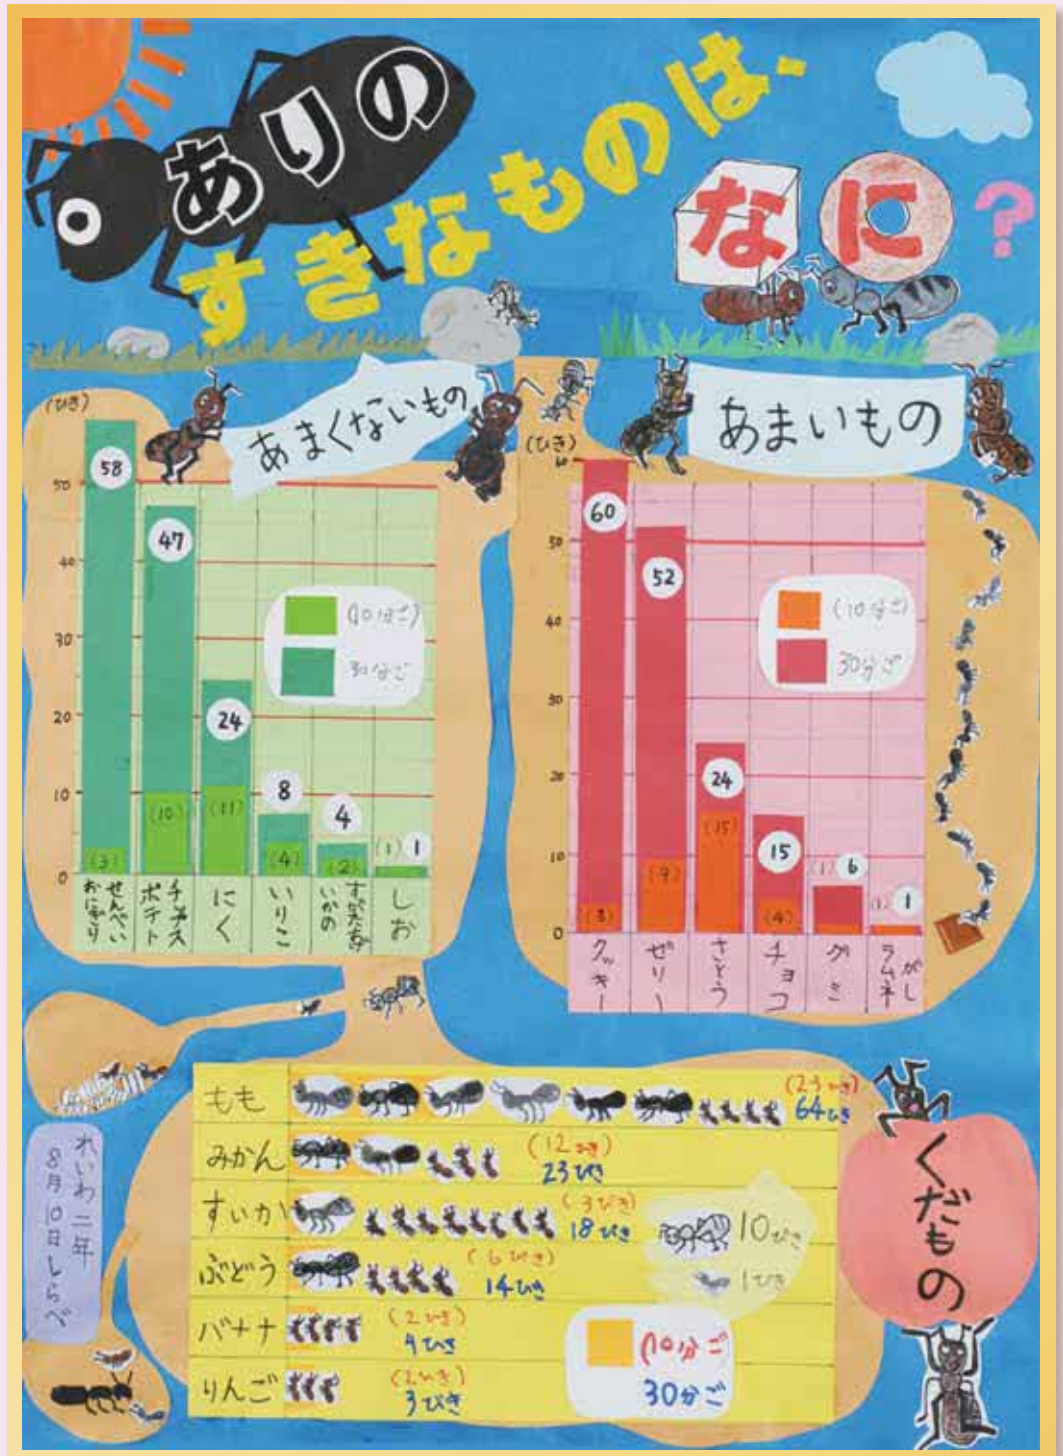 ありの
すきなものは、
なに?
あまくないもの
(ひき)
50
40
30
20
10
0
58
47
24
8
4
1
(3)
(10)
(11)
(4)
(2)
(1)
(10分ご)
30分ご
おにぎり
せんべい
ポテト
チップス
にく
いりこ
いかの
しお
あまいもの
(ひき)
60
50
40
30
20
10
0
60
52
24
15
6
1
(3)
(9)
(15)
(4)
(1)
(1)
(10分ご)
30分ご
クッキー
ゼリー
さとう
チョコ
グミ
ラムネ
がし
くだもの
もも (23ひき)
64ひき
みかん (12ひき)
23ひき
すいか (3びき)
18ひき
ぶどう (6ぴき)
14ひき
バナナ (2ひき)
4ひき
りんご (2ひき)
3びき
10ぴき
1ぴき
(10分ご)
30分ご
れいわ二年
8月10日しらべ